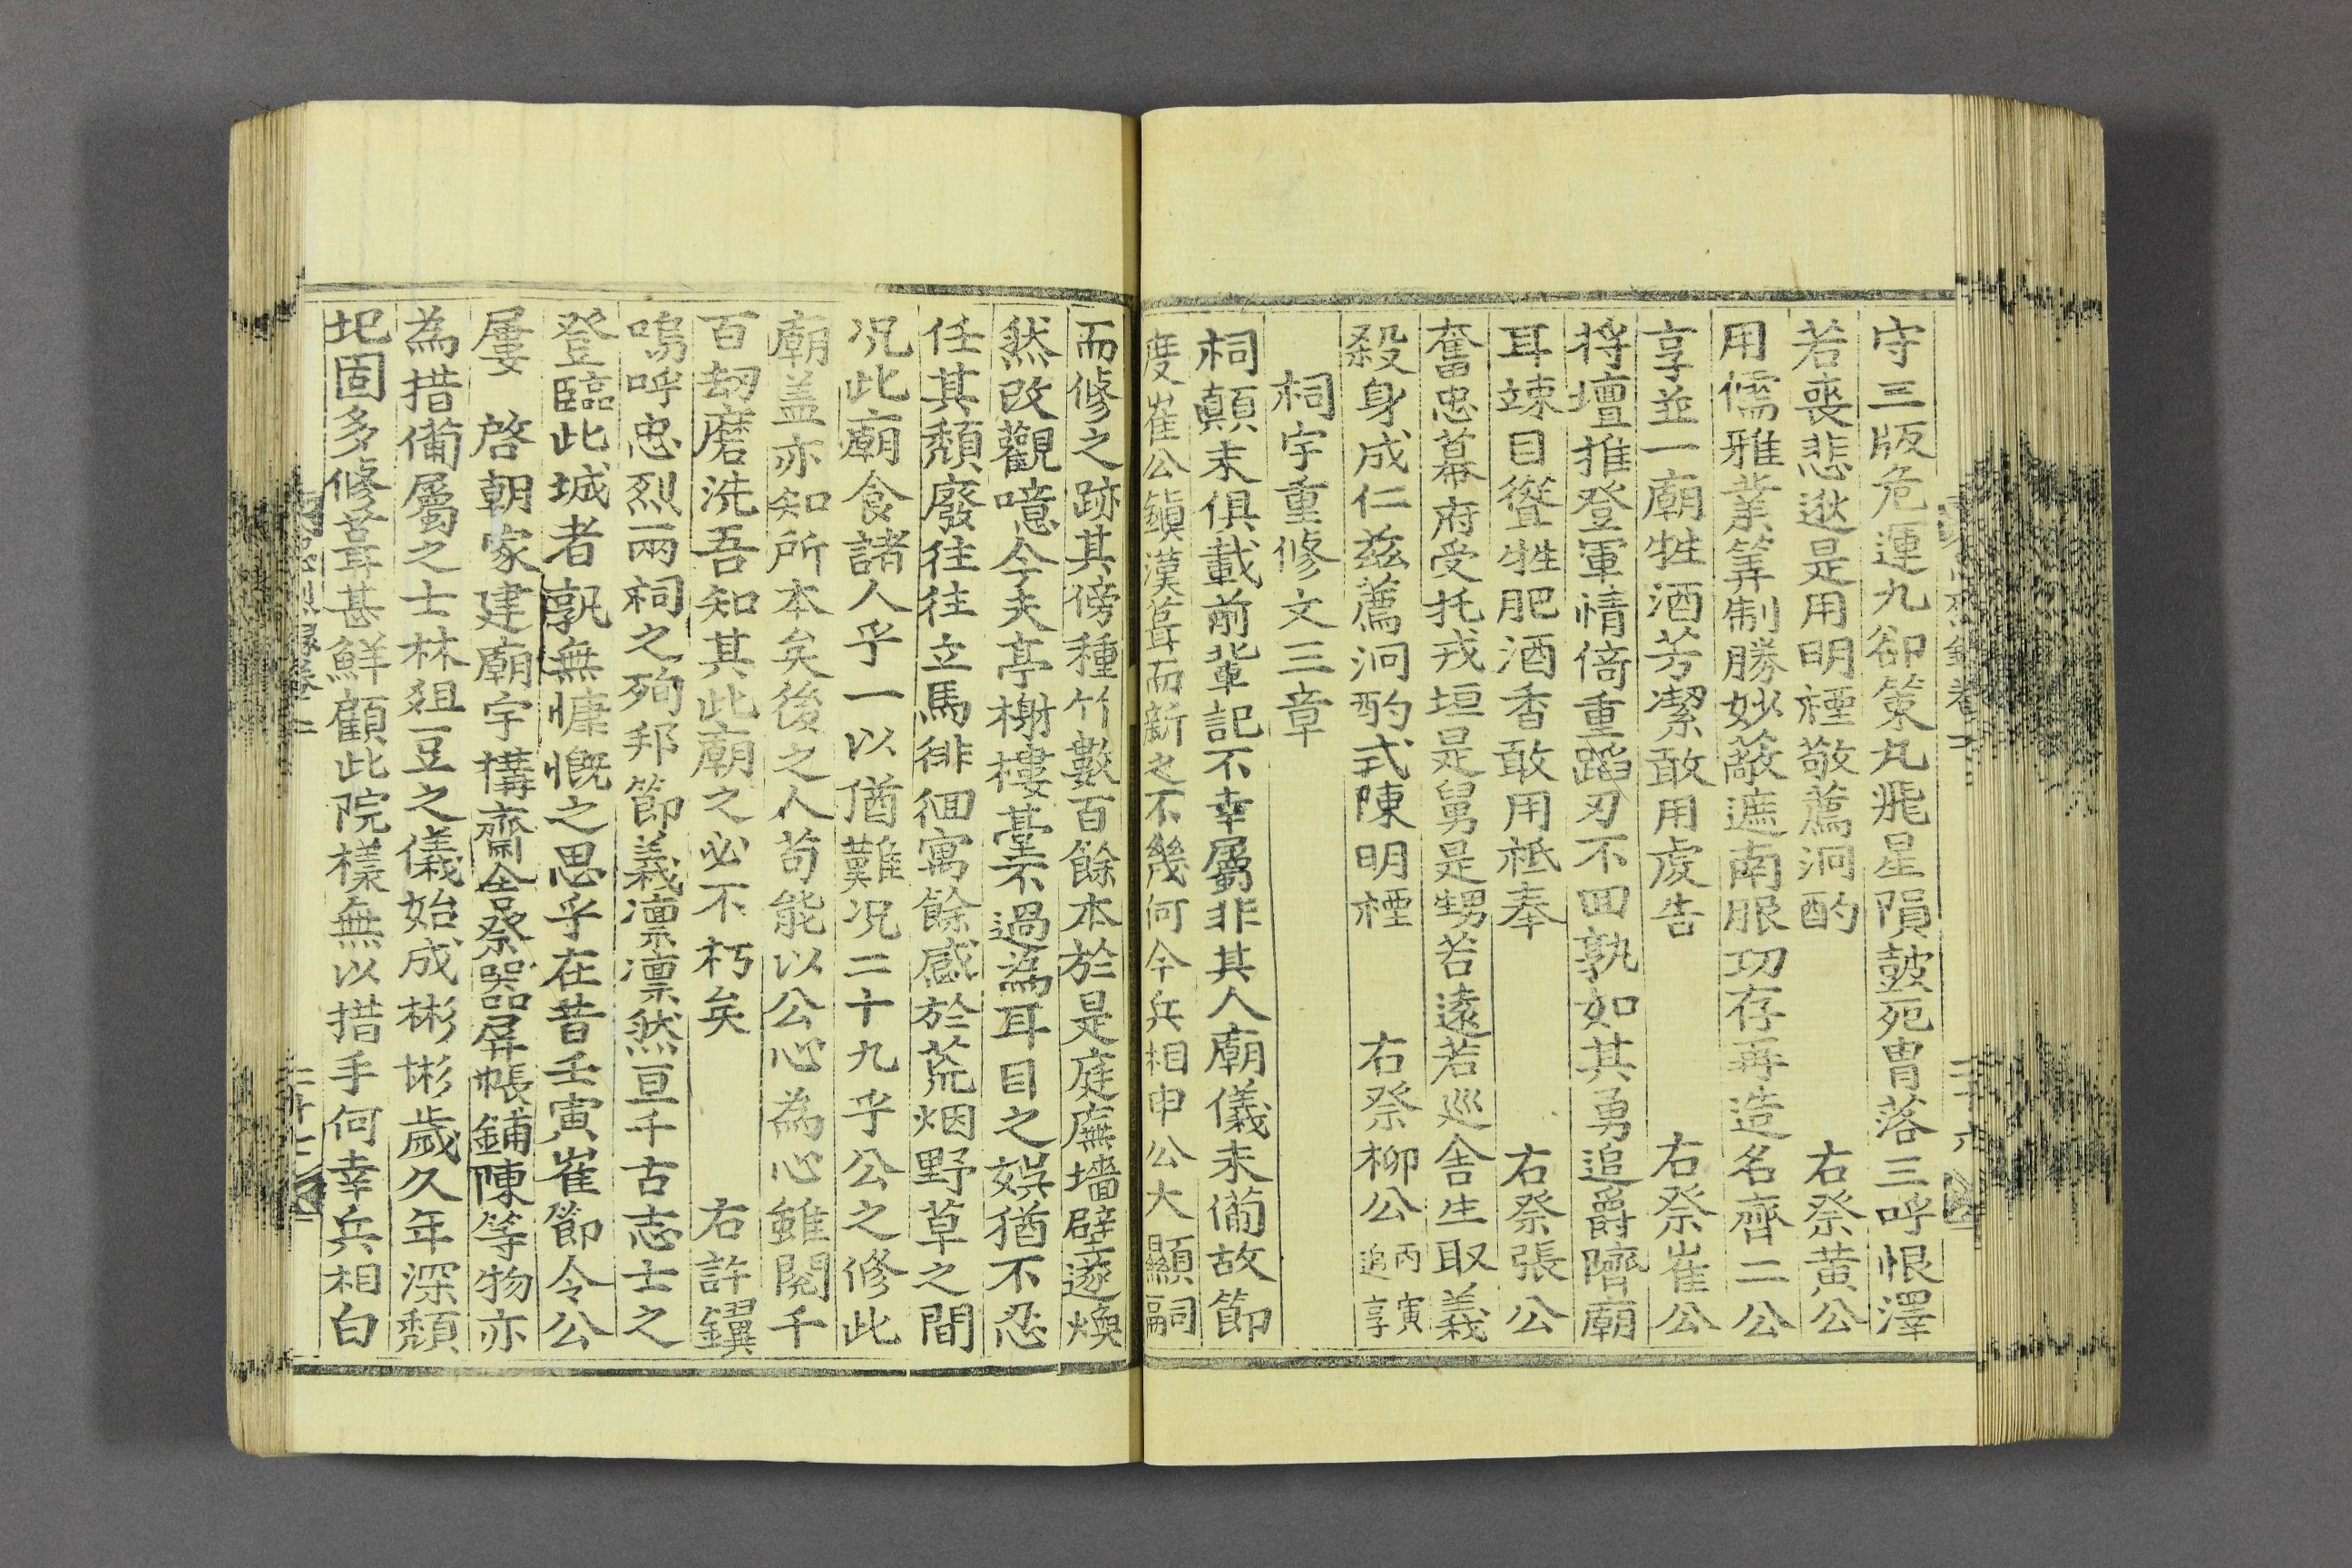 守三版危運九卻策丸飛星隕鼓死冑落三呼恨澤
若喪悲逖是用明禋敬薦泂酌　右祭黃公
用儒雅業筭制勝妙簸遮南服功存再造名齊二公
享並一廟牲酒芳潔敢用虔告　右祭崔公
將壇推登軍情倚重蹈刃不回孰如其勇追爵隮廟
耳竦目聳牲肥酒香敢用祗奉　右祭張公
奮忠幕府受托戎垣是舅是甥若遠若巡舍生取義
殺身成仁玆薦泂酌式陳明禋　右祭柳公丙寅追享
祠宇重修文三章
祠顛末俱載前輩記不幸屬非其人廟儀未備故節
度崔公鎭漢葺而新之不幾何今兵相申公大顯嗣
而修之跡其傍種竹數百餘本於是庭廡墻壁遂煥
然改觀噫今夫亭榭樓臺不過為耳目之娛猶不忍
任其頹廢往往立馬徘徊寓餘感於荒烟野草之間
况此廟食諸人乎一以酋難况二十九乎公之修此
廟盖亦知所本矣後之人苟能以公心為心雖閱千
百刼磨洗吾知其此廟之必不朽矣　右許鑂
嗚呼忠烈兩祠之殉邦節義凛凛然亘千古志士之
登臨此城者孰無慷慨之思乎在昔壬寅崔節令公
屢　啓朝家建廟宇構齋舍祭器屏帳鋪陳等物亦
為措備屬之士林俎豆之儀始成彬彬歲久年深頹
圮固多修葺甚鮮顧此院樣無以措手何幸兵相白